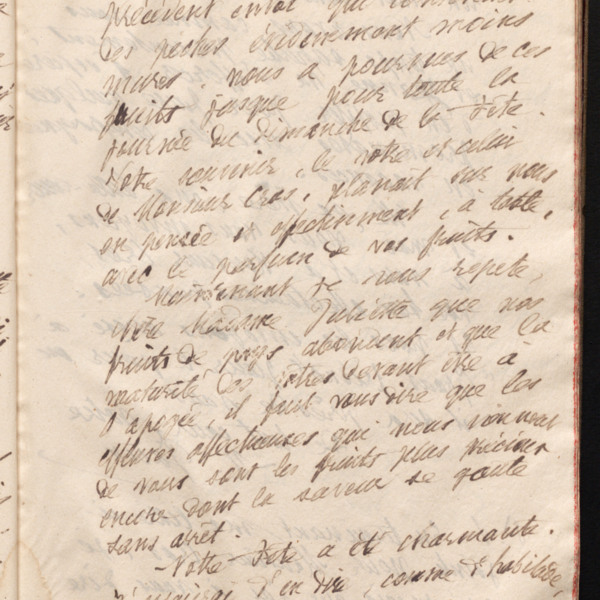 précédent envoi qui
des peches évidemment moins
mures. nous a pourvues de ces
fruits jusque pour toute la
journée du Dimanche de la fête.
Votre souvenir, le votre et celui
de Monsieur Cros, planait sur nous
en pensée et affectivement, à table,
avec le parfum de vos fruits.
Maintenant je vous repete,
chère Madame Juliette que nos
fruits de pays abondent et que la
maturité des votres devant être à
l'apogée il faut vous dire que les
affectueuses qui nous
de vous sont les fruits plus précieux
encore dont la saveur se goute
sans arrêt.
Votre Fête a été charmante.
d'en dire, comme d'habitude,